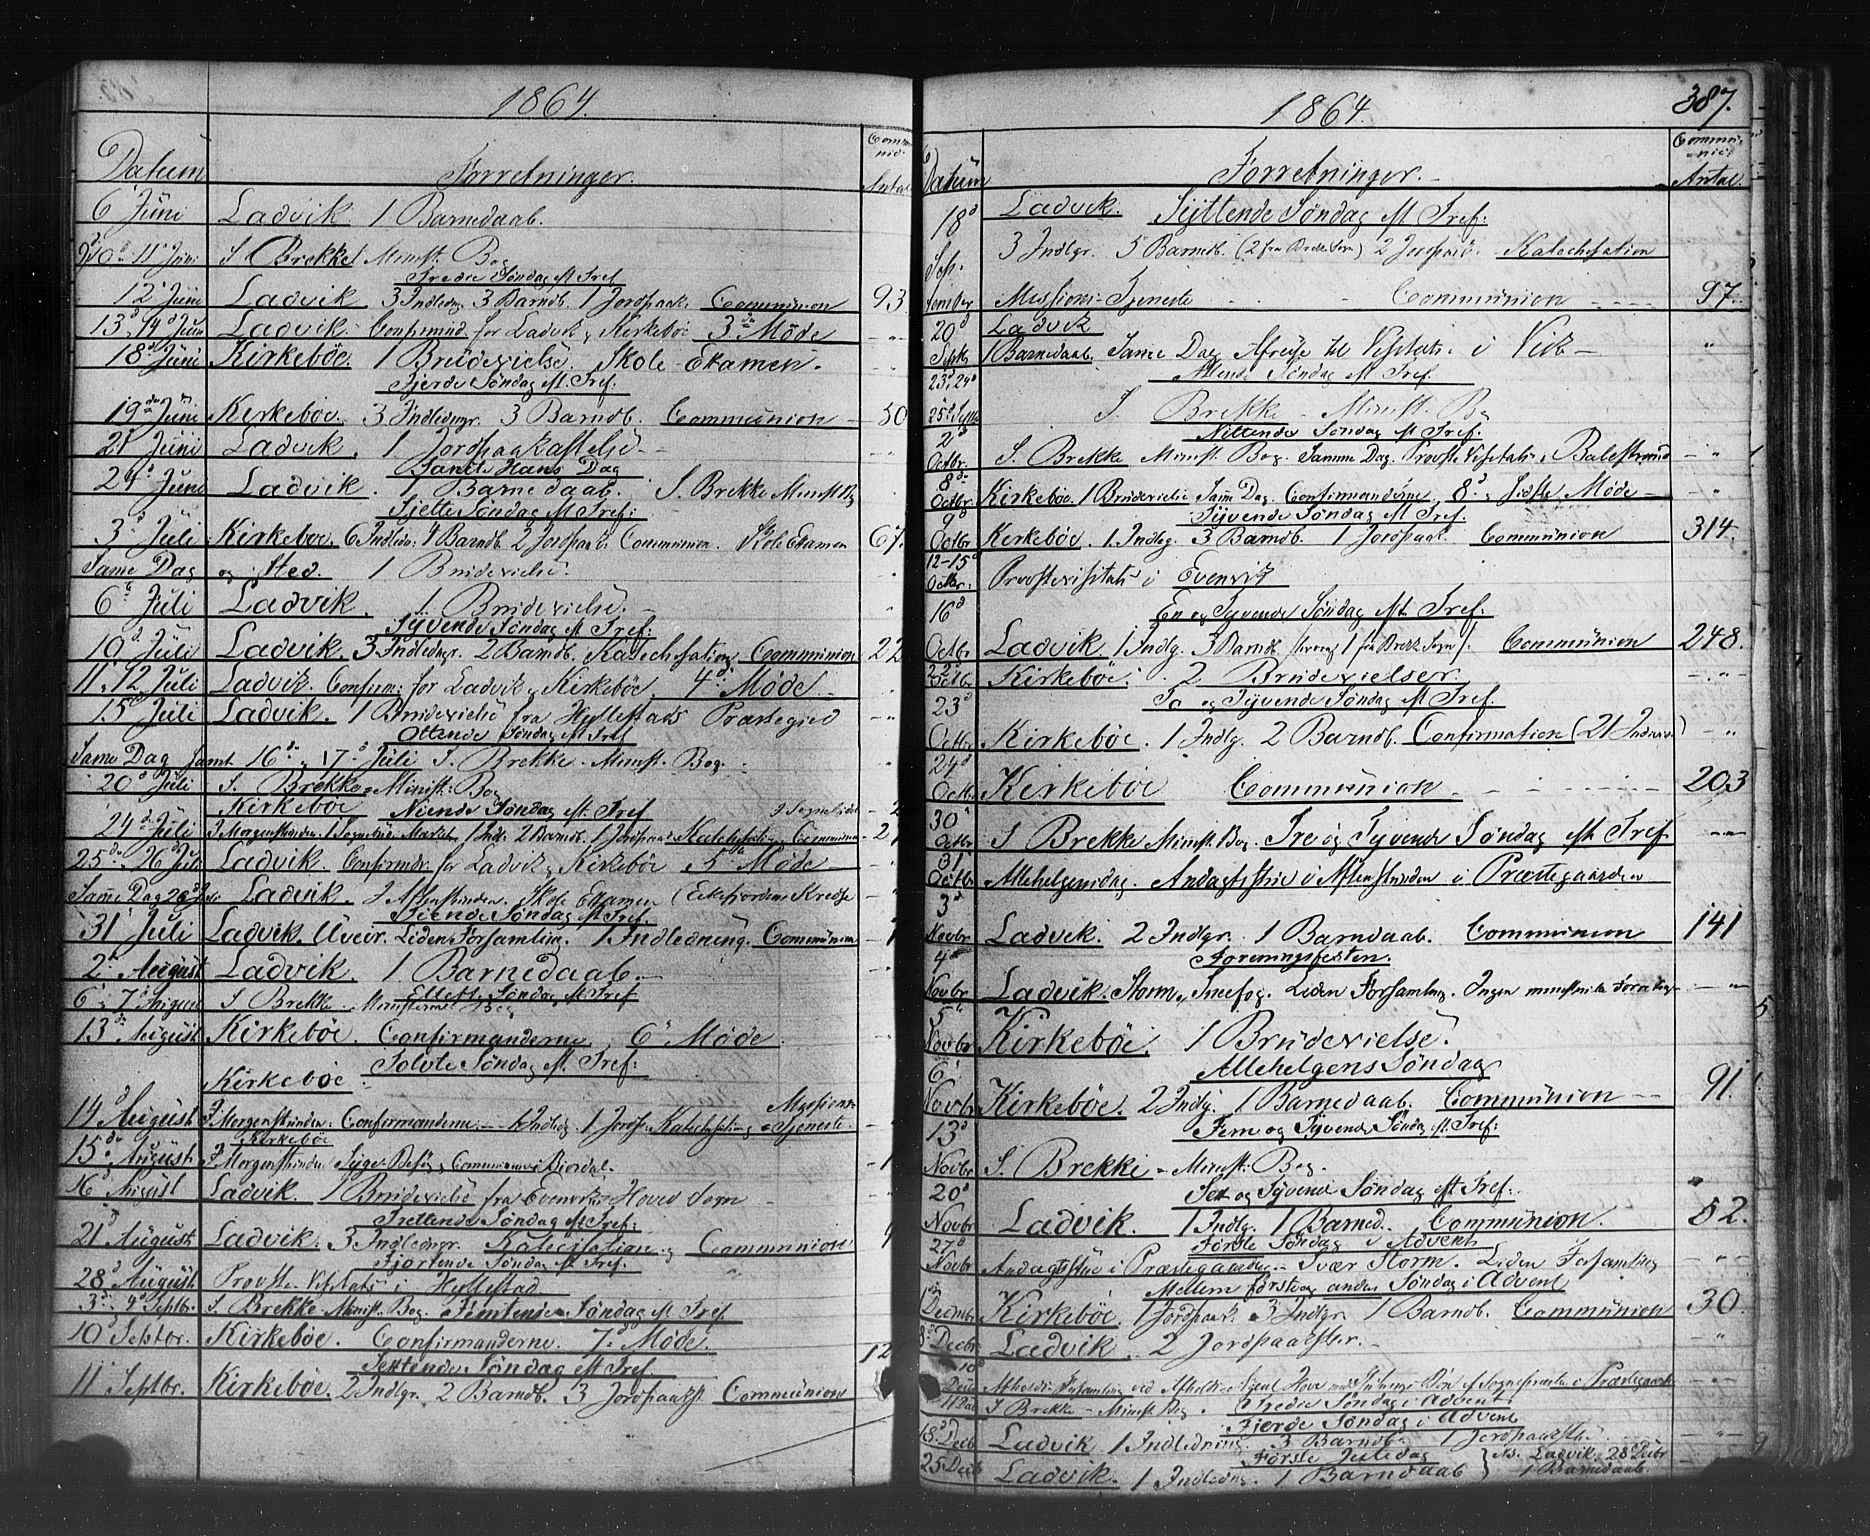 1864.
Datum
Forretninger.
Antal
6 Juni Ladvik. 1 Barnedaab.
9 10 11 Juni S. Brekke Minist. Bog
Tredie Søndag eft Tref
12 Juni Ladvik. 3 Indledng. 3 Barndb. 1 Jordpaak. Communion 93.
13 14 Juni Ladvik. Confirmd. for Ladvik og Kirkebøe 3die Møde
18 Juni Kirkebøe. 1 Brudevielse. Skole-Examen.
Fjerde Søndag eft Tref.
19de Juni Kirkebøe. 3 Indledngr. 3 Barndb. Communion 50
21 Juni Ladvik. 1 Jordpaakastelse
Sancte Hans Dag
24 Juni Ladvik. 1 Barnedaab. S. Brekke Minist Bog
Sjette Søndag eft Tref:
3 Juli Kirkeboe. 6 Indledn. 4 Barndb. 2 Jordpaak. Communion. Skole Examen 67.
Samme Dag og Sted. 1 Brudevielse.
6 Juli Ladvik. 1 Brudevielse.
Syvende Søndag eft Tref:
10 Juli Ladvik. 3 Indledngr. 2 Barndb. Katechesation Communion 22
11, 12 Juli Ladvik. Confirm. for Ladvik og Kirkebøe. 4 Møde
15 Juli Ladvik. 1 Brudevielse fra Hyllestads Præstegjed
Ottende Søndag eft Tref
Samme Dag samt 16 og 17 Juli S. Brekke. Minist. Bog.
20 Juli S. Brekke Minist: Bog
Kirkebøe Niende Søndag eft Tref
24 Juli Katechesation Communion
25 26 Juli Ladvik. Confirmdr. for Ladvik og Kirkebøe 5 Møde
Samme Dag 26 Juli Ladvik. I Aftenstunden. Skole Examen
Tiende Søndag eft Tref.
31 Juli Ladvik. Uveir. Liden Forsamling. 1 Indledning. Communion
2 August Ladvik. 1 Barnedaab.
Ellefte Søndag eft Tref
6 og 7 August S. Brekke. Ministerial Bog
13 August Kirkebøe. Confirmanderne 6 Møde.
Tolvte Søndag eft Tref:
Kirkebøe
14 August I Morgenstunden. Confirmanderne. Indledg. 1 Jordp. Katechesation og Missions-Tjeneste
Kirkebøe
15 August I Morgenstunden Syge-Besøg Communion i Bjordal.
16 August Ladvik. 1 Brudevielse fra Evenviks Hoved Sogn
Trettende Søndag eft Tref:
21 August Ladvik. 3 Indledngr. Katecisation og Communion
Fjortende Søndag eft Tref.
28 August Provste-Visitats i Hyllestad
3 4 Septbr. S. Brekke Minist. Bog Femtende Søndag eft Tref
10 Septbr. Kirkebøe. Confirmanderne. 7 Møde.
Sextende Søndag eft Tref. 12
11 Septbr. Kirkebøe. 2 Indlgr. 2 Barndb. 3 Jordpaakst. Communion
1864.
387.
Datum
Forretninger.
Antal.
18 September Ladvik. Syttende Søndag eft Tref:
3 Indlgr. 5 Barndb. (2 fra Brekke Sogn) 2 Jordpaak. Katechesation
Missions-Tjeneste Communion 97.
20 Septbr Ladvik
1 Barnedaab. Samme Dag Afreise til Visitats i Vik
Attende Søndag eft Tref.
23, 24, 25 Septbr S. Brekke Minist. Bog
Nittende Søndag eft Tref.
2 Octbr. S. Brekke Minist. Bog. Samme Dag. Provste Visitats i Balestrand
8 Octbr. Kirkebøe. 1 Brudevielse Samme Dag. Confirmanderne, 8 og sidste Møde
Tyvende Søndag eft Tref.
9 Octbr Kirkebøe. 1 Indlg. 3 Barndb. 1 Jordpaak. Communion 314.
12-15 Octbr. Provstevisitats i Evenvik
16 En og Tyvende Søndag eft Tref:
Octbr. Ladvik 1 Indlg. 3 Barndb (hvoraf 1 fra Brekke Sogn). Communion 248.
22 Octbr. Kirkebøe. 2 Brudevielser.
To og Tyvende Søndag eft Tref.
23 Octbr Kirkebøe. 1 Indlg. 2 Barndb. Confirmation (21 Individer)
24 Octbr Kirkebøe Communion 203
30 Octbr S. Brekke Minist. Bog. Tre og Tyvende Søndag eft Tref
31 Octbr Allehelgensdag. Andagtstime i Aftenstunden i Præstegaarden
3 Novbr Ladvik. 2 Indlgr. 1 Barndaab. Communion 141
Foreningsfesten
4 Novbr Ladvik. Storm og Sneefog. Liden Forsamling. Ingen ministerielle Forretninger
5 Novbr Kirkebøe. 1 Brudevielse.
Allehelgens Søndag
6 Novbr Kirkebøe. 2 Indlg. 1 Barnedaab. Communion 91.
Fem og Tyvende Søndag eft Tref:
13 Novbr S. Brekke Minist. Bog.
Sex og Tyvende Søndag eft Tref:
20 Novbr Ladvik. 1 Indlg. 1 Barned. Communion. 52.
Første Søndag i Advent
27 Novbr Andagtstime i Præstegaarden. Svær Storm. Liden Forsamling
Mellem første og anden Søndag i Advent
1 Decmbr Kirkebøe. 1 Jordpaak. 3 Indlgr 1 Barndb. Communion 30.
8 Decbr Ladvik. 2 Jordpaakster.
10 Decbr
11 Dec S Brekke - Minist. Bog. Tredie Søndag i Advent
Fjerde Søndag i Advent
18 Decb Ladvik 1 Indledning. 3 Barndb. 1 Jordpaakstlse
Første Juledag
25 Decb Ladvik. 1 Indledng. 1 Barndaab } NB. Ladvik 28 Decbr 1 Barnedaab.